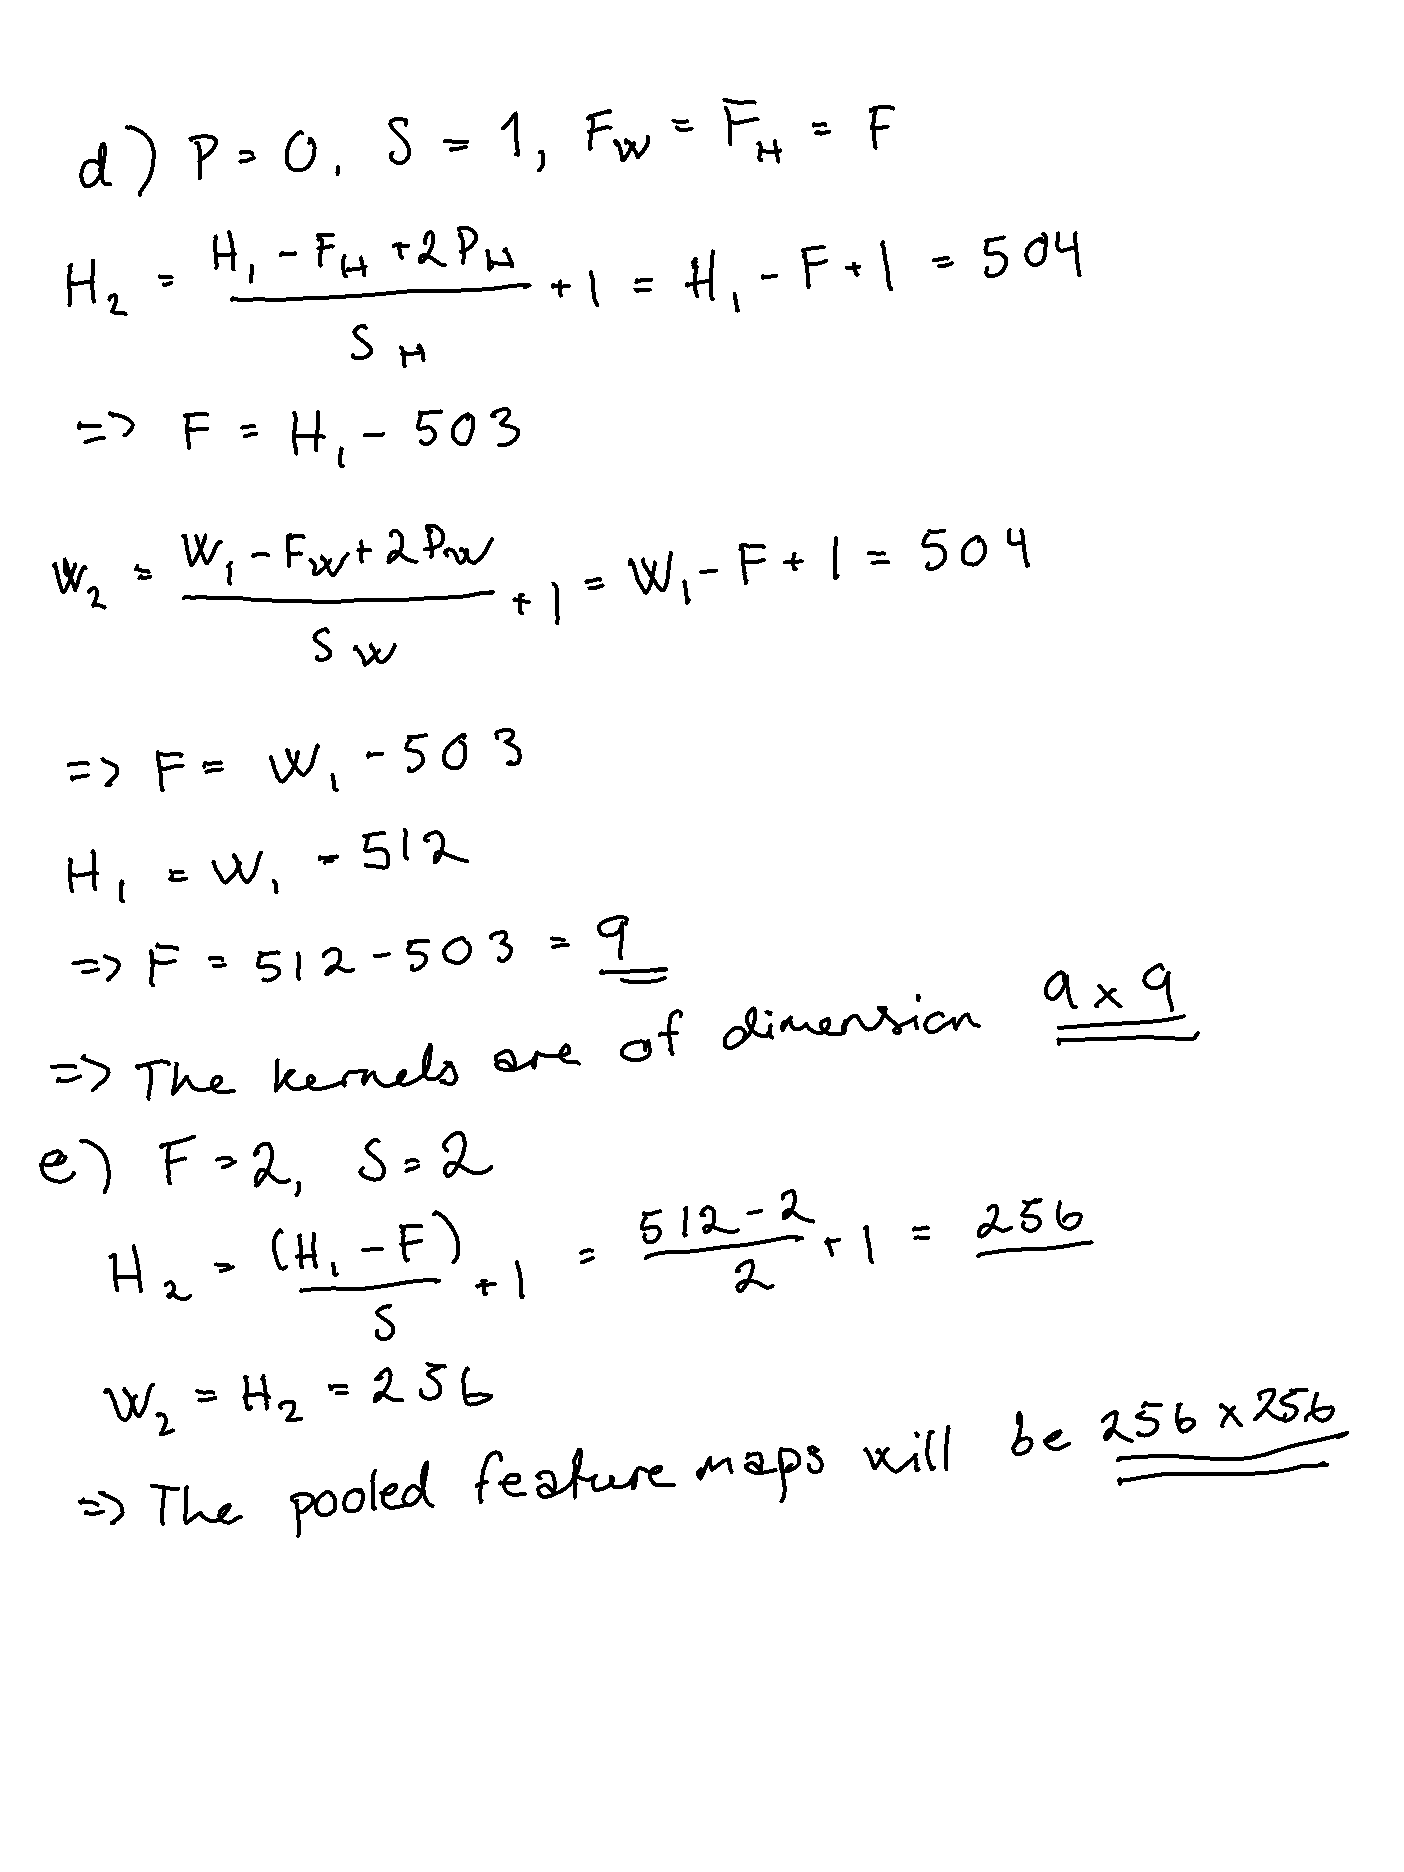 d) P = 0, S = 1, F_W = F_H = F
H_2 = (H_1 - F_H + 2P_H) / S_H + 1 = H_1 - F + 1 = 504
=> F = H_1 - 503
W_2 = (W_1 - F_W + 2P_W) / S_W + 1 = W_1 - F + 1 = 504
=> F = W_1 - 503
H_1 = W_1 = 512
=> F = 512 - 503 = 9
=> The kernels are of dimension 9 x 9
e) F = 2, S = 2
H_2 = (H_1 - F) / S + 1 = (512 - 2) / 2 + 1 = 256
W_2 = H_2 = 256
=> The pooled feature maps will be 256 x 256